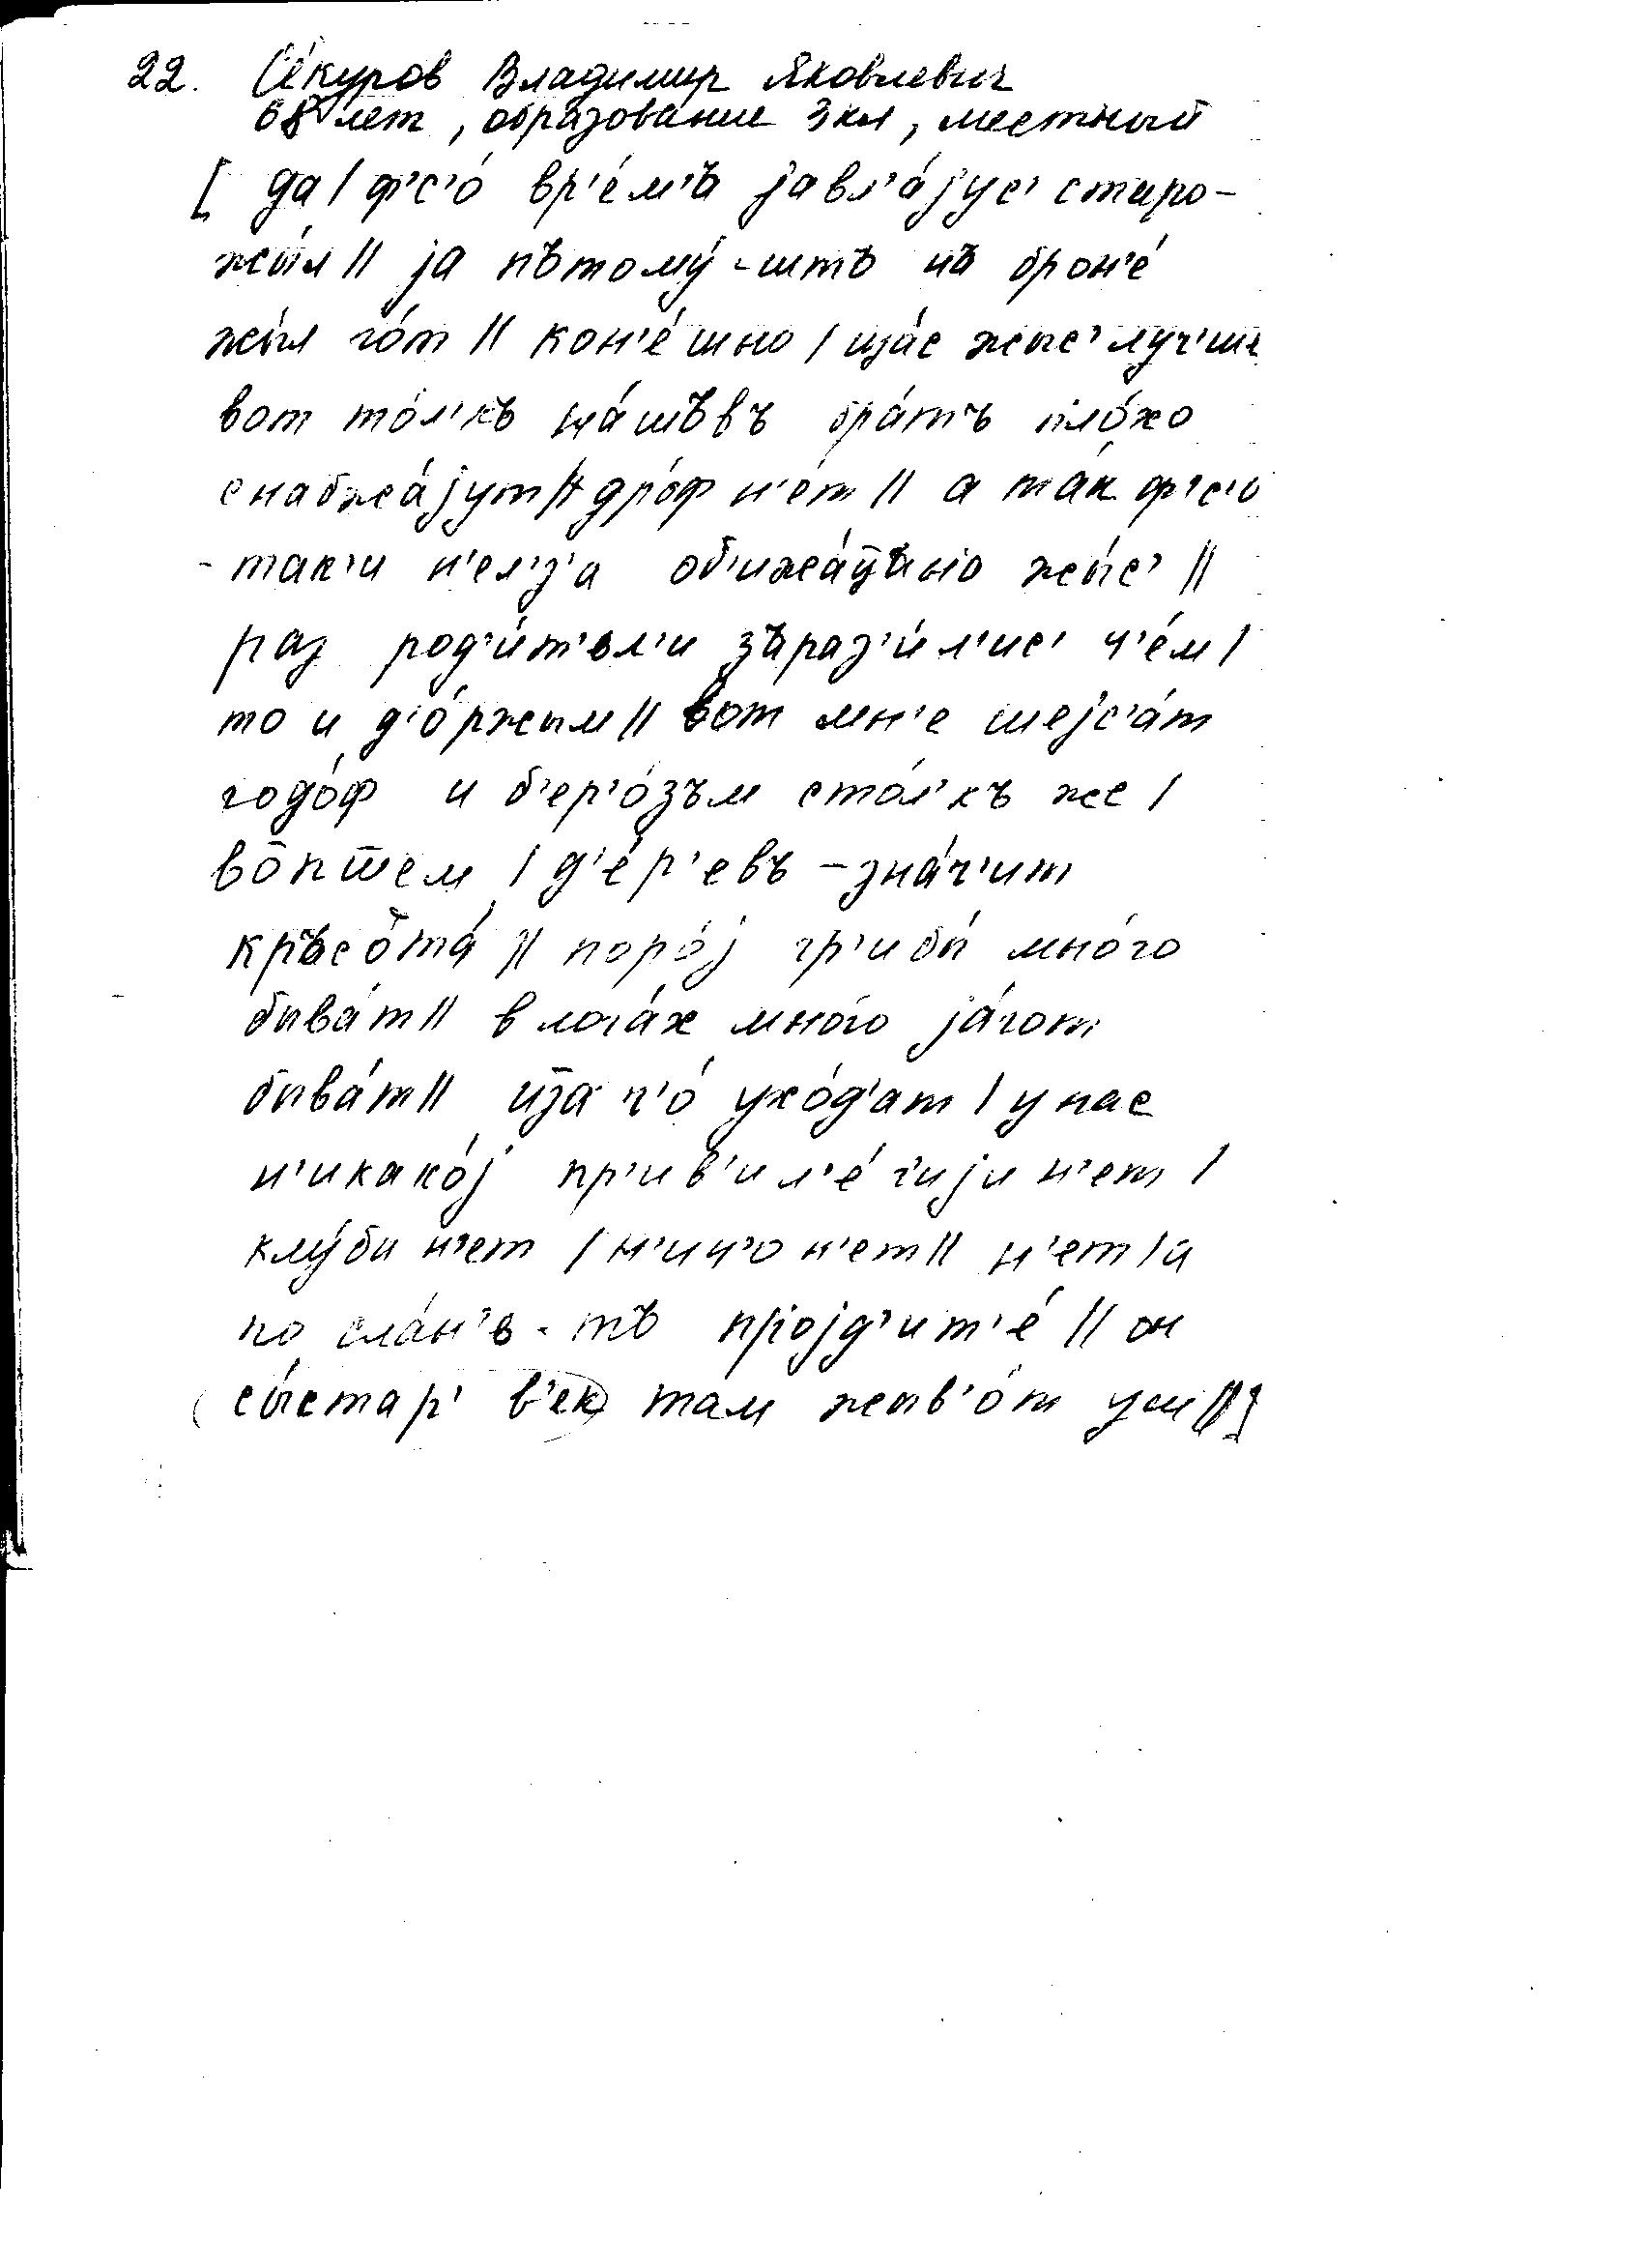 22. Се́куров Владимир Яковлевич
68 лет, образование 3 кл, местный
[ да / ф'с'о́ вр'е́м'ъ јавл'а́јус' старо-
жы́л // ја пътому́-штъ нъ брон'е́
жы́л го́т // кон'е́шно / ща́с жыс' лу́ч'шъ
вот то́л'къ на́шъвъ бра́тъ пло́хо
снабжа́јут // дро́ф н'е́т // а та́к ф'с'о
-так'и н'ел'з'а об'ижа́ццъ но жы́с' //
раз род'и́т'ьл'и зъраз'и́л'ис' ч'е́м /
то и д'о́ржым // вот мн'е шејс'а́т
годо́ф и б'ер'о́зъм сто́л'къ же /
во̄пщем / д'е́р'евъ - зна́ч'ит
кръсота́ // поро́ј гр'ибы́ мно́го
быва́т // в лога́х мно́го ја́гот
быва́т // иза ч'о́ ухо́д'ат / у нас
н'икако́ј пр'ив'ил'е́г'ији н'ет /
клу́бы н'ет / н'ич'о н'ет // н'ет / а
по сла́н'ь-тъ пројд'ит'е́ // он
сы́стар' в'ек там жыв'о́т уш // ]